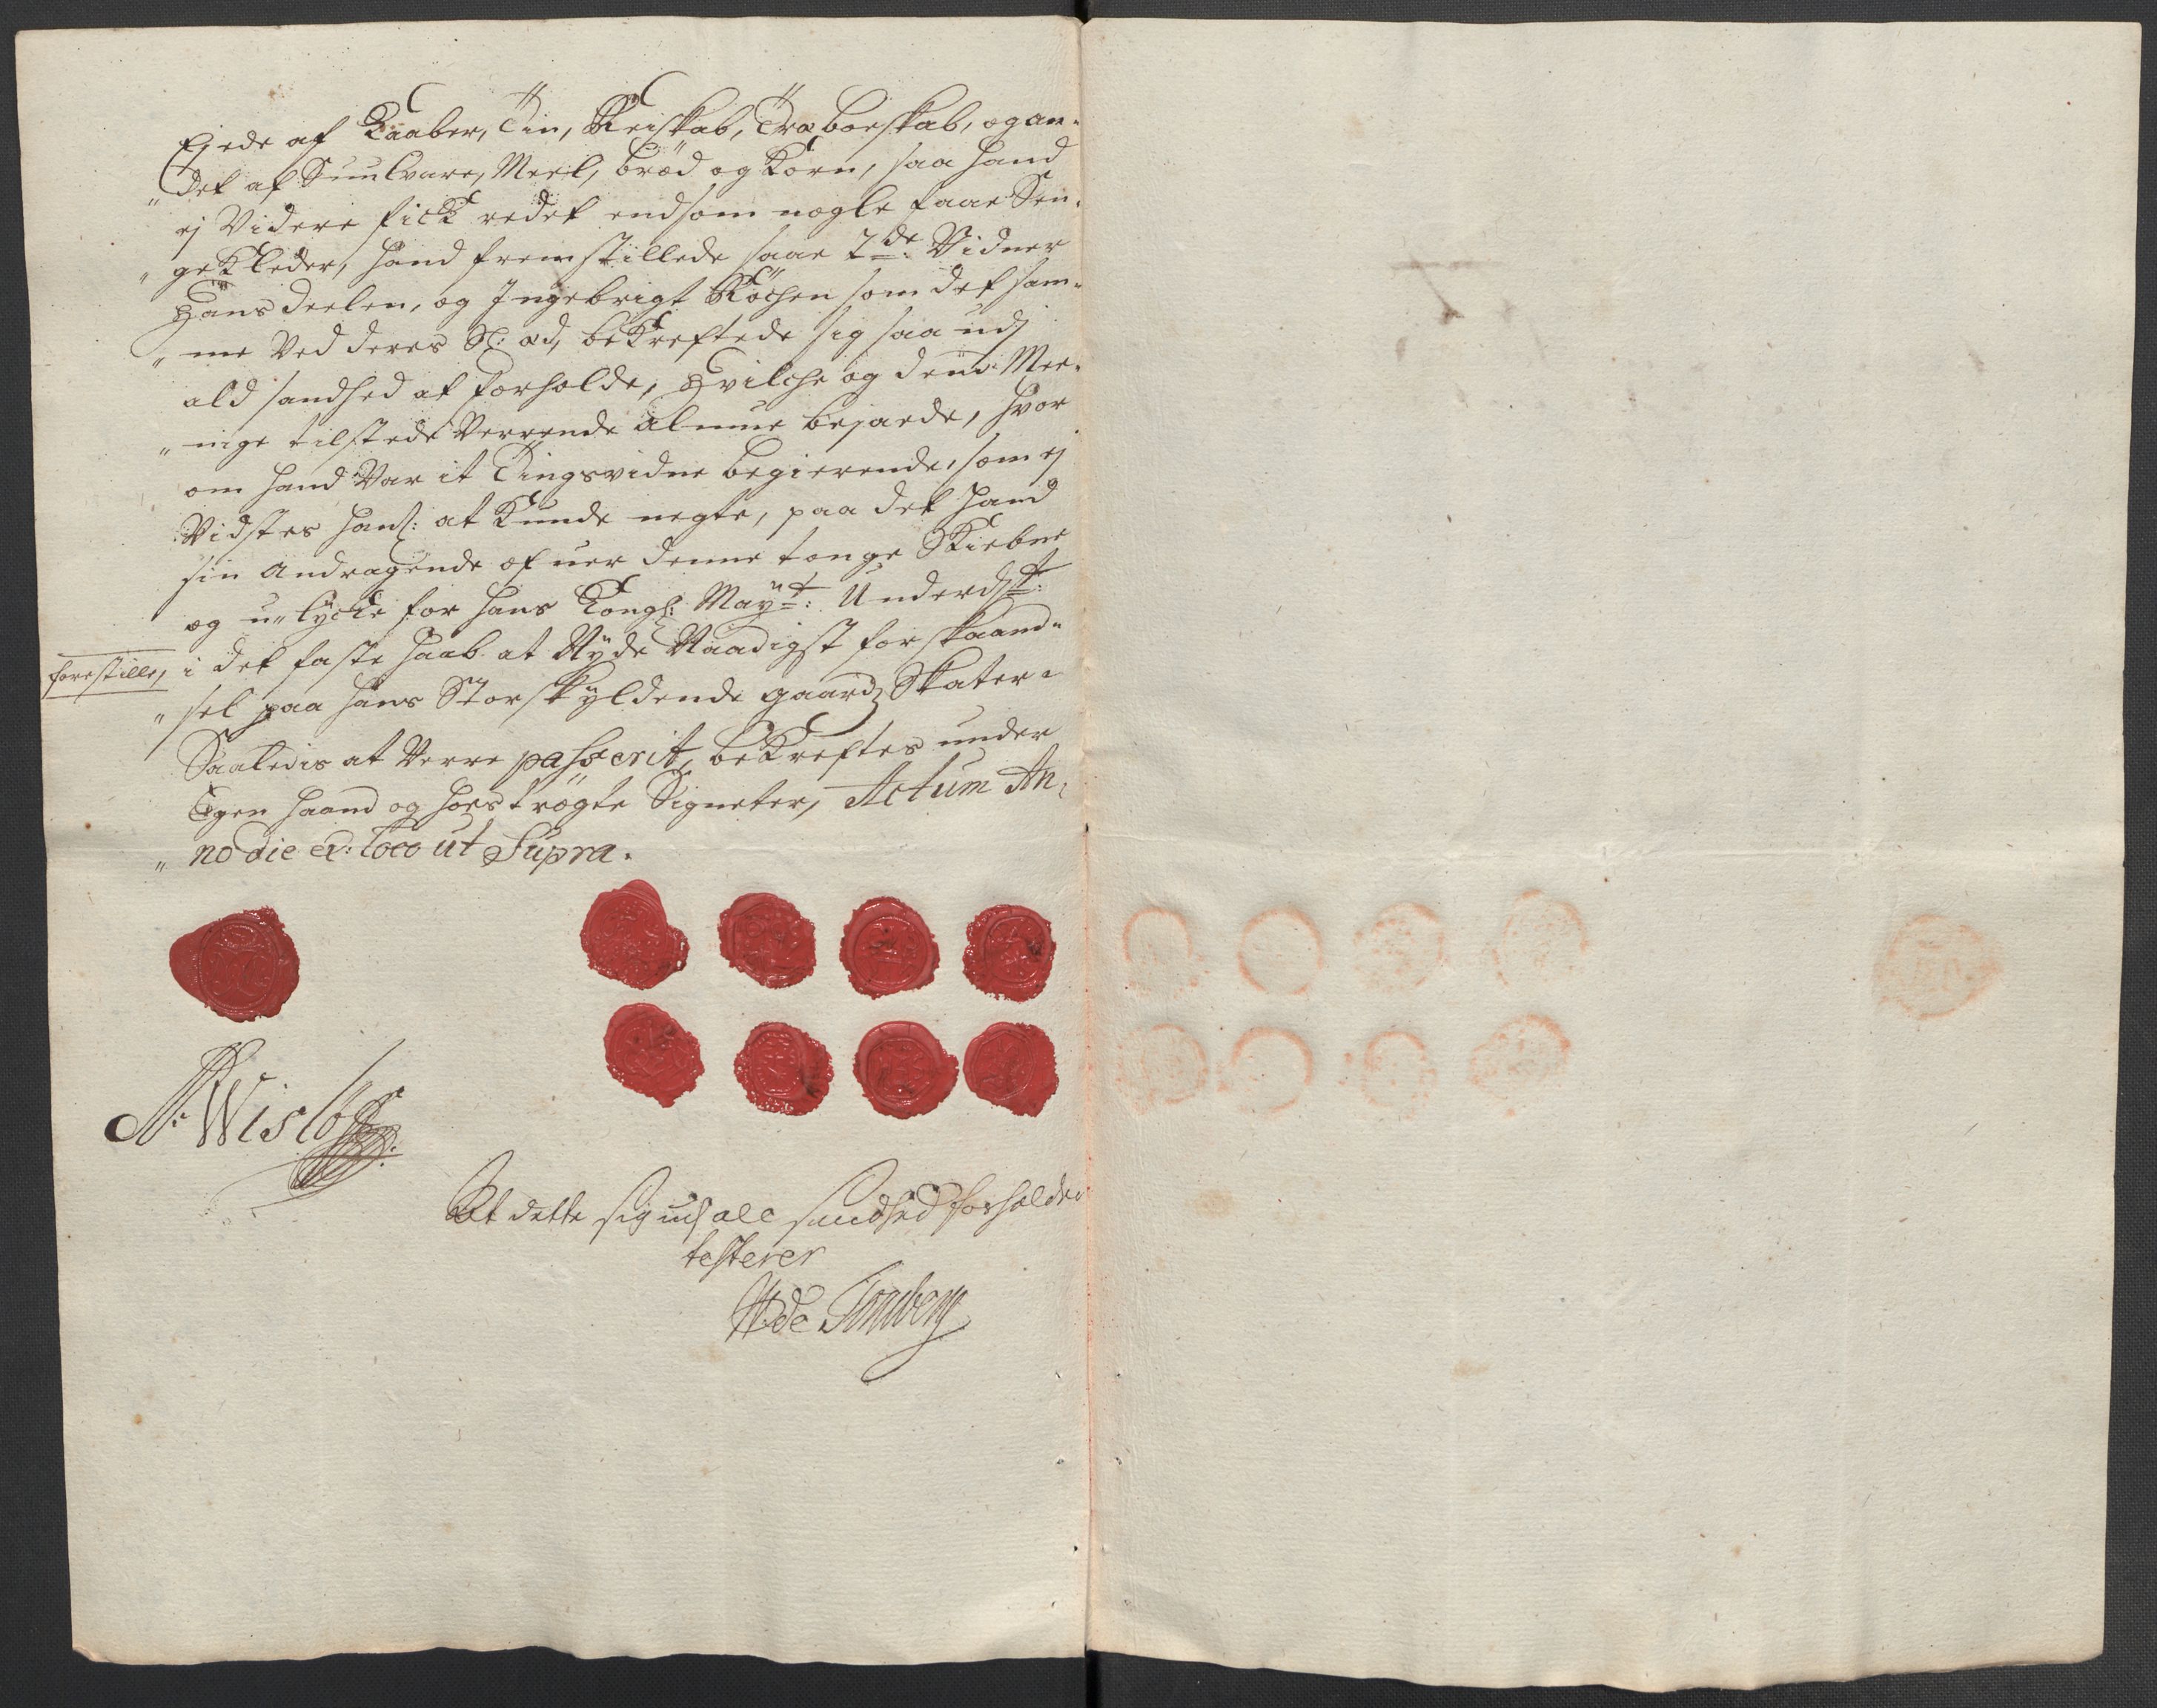 Ejede af Kaaber, Tin, Reiskab, Træboeskab, og an-
„ det af Suulvare, Meel, brød og Korn, saa hand
ej Videre fick redet end som nogle faae Sen-
„ geKleder, hand fremstillede saae 2de: Vidner
Hans Deelen, og Ingebrigt Röchen som det sam-
„ me Ved deres S: æd, beKreftede sig saa udj
ald sandhed at forholde, Hvilche og dend Mee-
„ nige tilstede Verrende almue bejaede, hvor
om hand Var it Tingsvidne begierende, som ej
Vidstes hanl: at Kunde negte, paa det hand
sin Andragende of uer denne tonge Skiebne
og u-lycke for hans Kongl: Mayt: Underdst:
forestille, i det faste haab at Nyde Naadigst forskaand-
„ sel paa hans Storskyldende gaardz Skater.
Saaledis at Verre passerit, beKreftes under
Egen haand og hoes trögte Signeter, Actum An-
„ no die et: loco ut Supra.
A: Wisløff
At dette sig udj ald sandhed forholder
testerer
H de Tonsberg